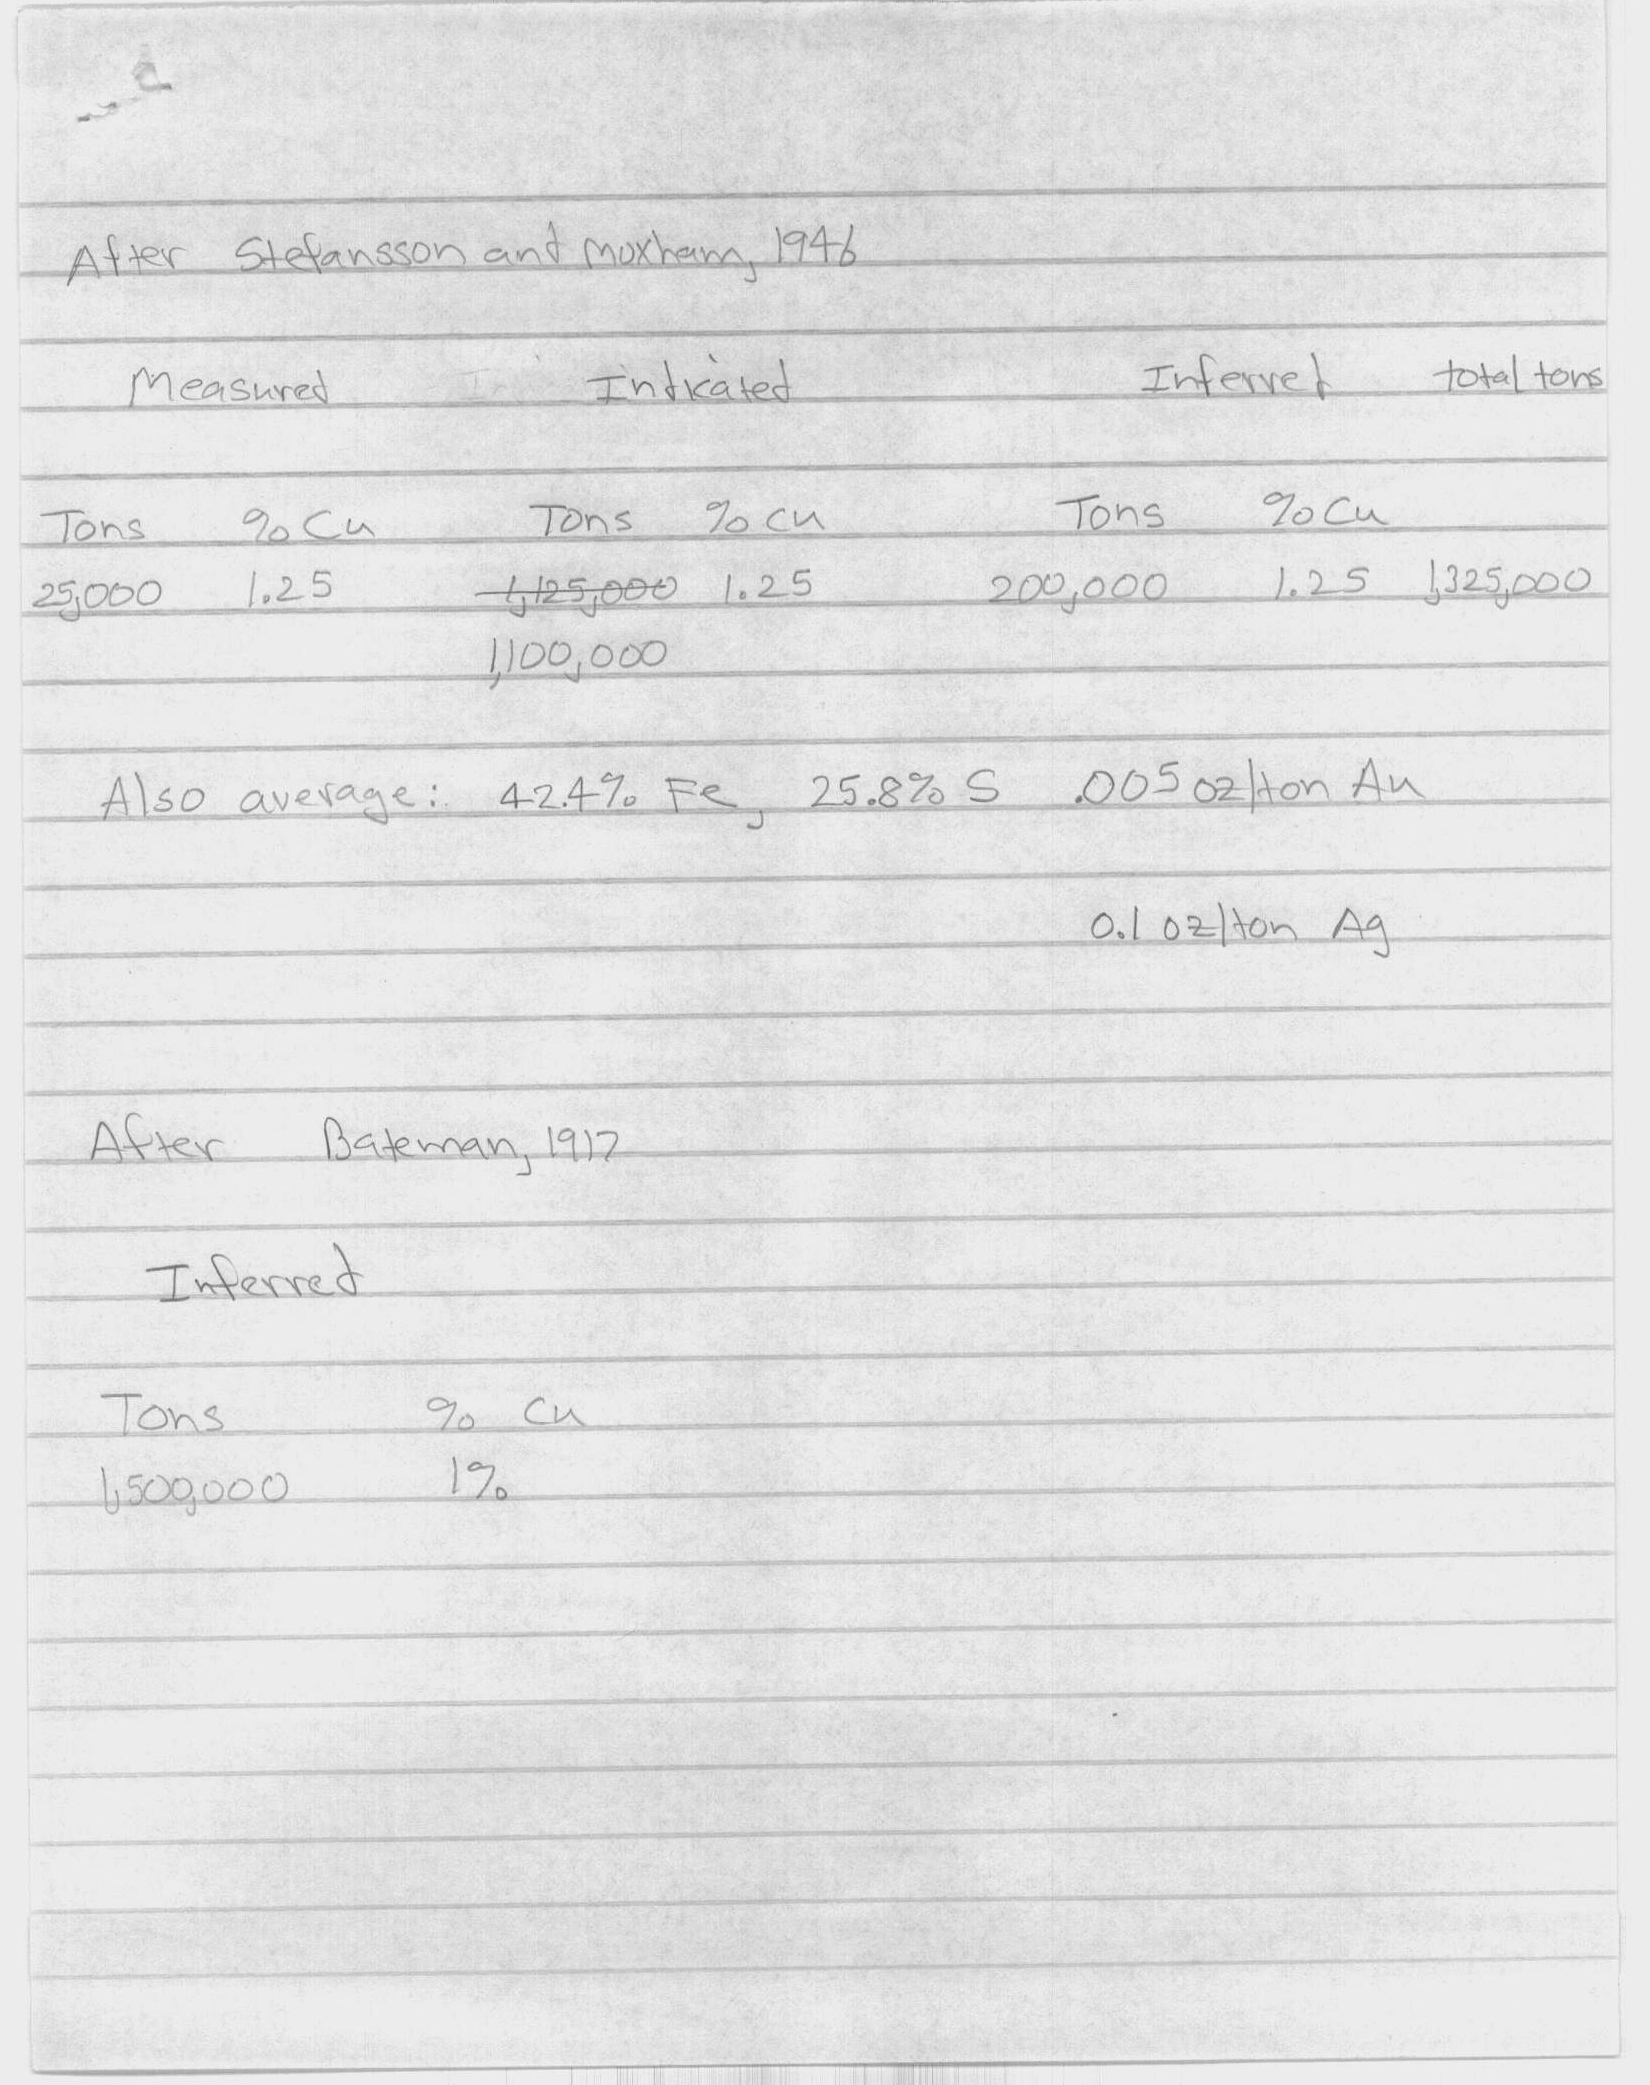 After Stefansson and Moxham, 1946
Measured Indicated Inferred total tons
Tons % Cu Tons % Cu Tons % Cu
25,000 1.25 1,125,000 1.25 200,000 1.25 1,325,000
1,100,000
Also average: 42.4% Fe, 25.8% S .005 oz/ton Au
0.1 oz/ton Ag
After Bateman, 1917
Inferred
Tons % Cu
1,500,000 1%